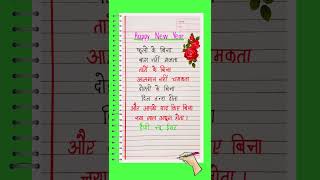 Happy New Year
फूलो के बिना
बाग नहीं महकता
तारों के बिना
आसमान नहीं चमकता
दोस्तों के बिना
दिल होता
और आपको याद किए बिना
नया साल अधूरा होता।
हैप्पी न्यू ईयर